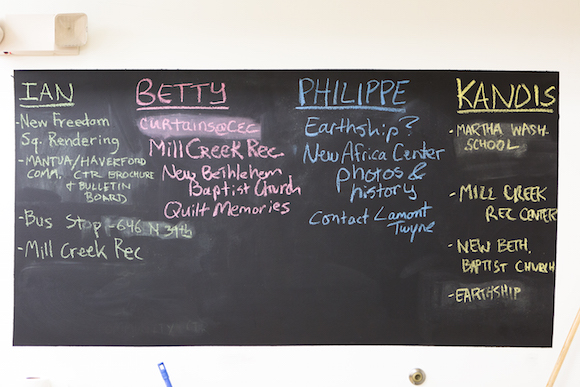 IAN
-New Freedom
Sq. Rendering
-MANTUA/HAVERFORD
COMM. CTR BROCHURE
& BULLETIN
BOARD
-Bus Stop -646 N 39th
-Mill Creek Rec
BETTY
CURTAINS@CEC
Mill Creek Rec
New Bethlehem
Baptist Church
Quilt Memories
PHILIPPE
Earthship?
New Africa Center
photos &
history
Contact Lamont
Twyne
KANDIS
-MARTHA WASH.
SCHOOL
-MILL CREEK
REC CENTER
-NEW BETH.
BAPTIST CHURCH
-EARTHSHIP